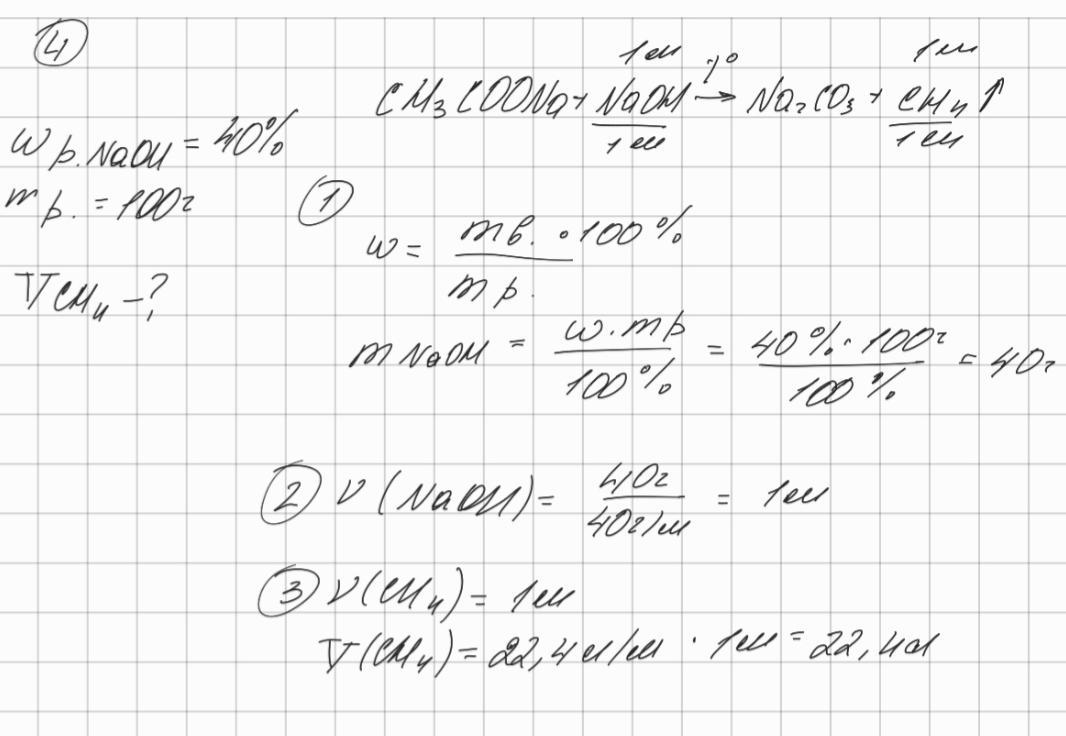 ④
1м 1м
CH₃COONa + NaOH →t° Na₂CO₃ + CH₄↑
1м 1м
ω р. NaOH = 40%
m р. = 100г
V CH₄ - ?
①
ω = mв. · 100% / mр.
m NaOH = ω · mр / 100% = 40% · 100г / 100% = 40г
② ν(NaOH) = 40г / 40г/м = 1м
③ ν(CH₄) = 1м
V(CH₄) = 22,4л/м · 1м = 22,4л